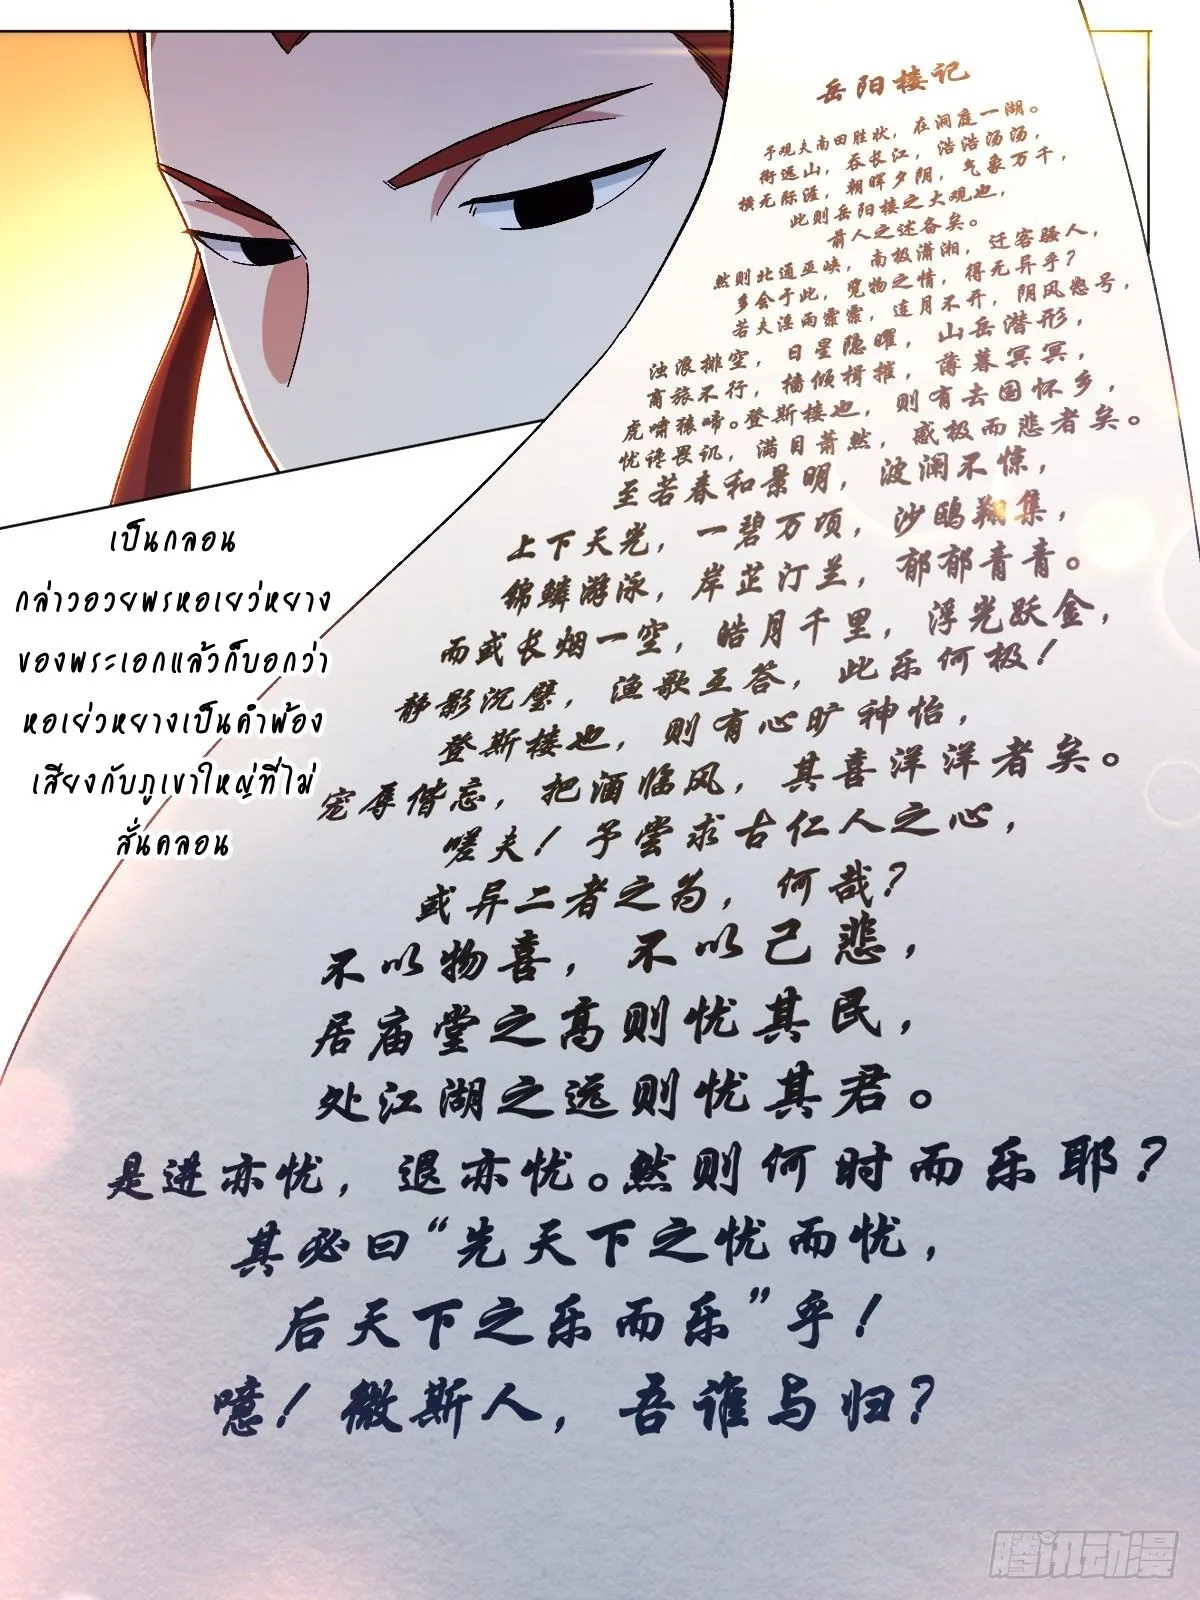 岳阳楼记
予观夫南田胜状，在洞庭一湖。
衔远山，吞长江，浩浩汤汤，
横无际涯，朝晖夕阴，气象万千，
此则岳阳楼之大观也，
前人之述备矣。
然则北通巫峡，南极潇湘，迁客骚人，
多会于此，览物之情，得无异乎？
若夫淫雨霏霏，连月不开，阴风怒号，
浊浪排空，日星隐曜，山岳潜形，
商旅不行，樯倾楫摧，薄暮冥冥，
虎啸猿啼。登斯楼也，则有去国怀乡，
忧谗畏讥，满目萧然，感极而悲者矣。
至若春和景明，波澜不惊，
上下天光，一碧万顷，沙鸥翔集，
锦鳞游泳，岸芷汀兰，郁郁青青。
而或长烟一空，皓月千里，浮光跃金，
静影沉璧，渔歌互答，此乐何极！
登斯楼也，则有心旷神怡，
宠辱偕忘，把酒临风，其喜洋洋者矣。
嗟夫！予尝求古仁人之心，
或异二者之为，何哉？
不以物喜，不以己悲，
居庙堂之高则忧其民，
处江湖之远则忧其君。
是进亦忧，退亦忧。然则何时而乐耶？
其必曰“先天下之忧而忧，
后天下之乐而乐”乎！
噫！微斯人，吾谁与归？
เป็นกลอน
กล่าวอวยพรหอเยว่หยาง
ของพระเอกแล้วก็บอกว่า
หอเย่วหยางเป็นคำพ้อง
เสียงกับภูเขาใหญ่ที่ไม่
สั่นคลอน
腾讯动漫